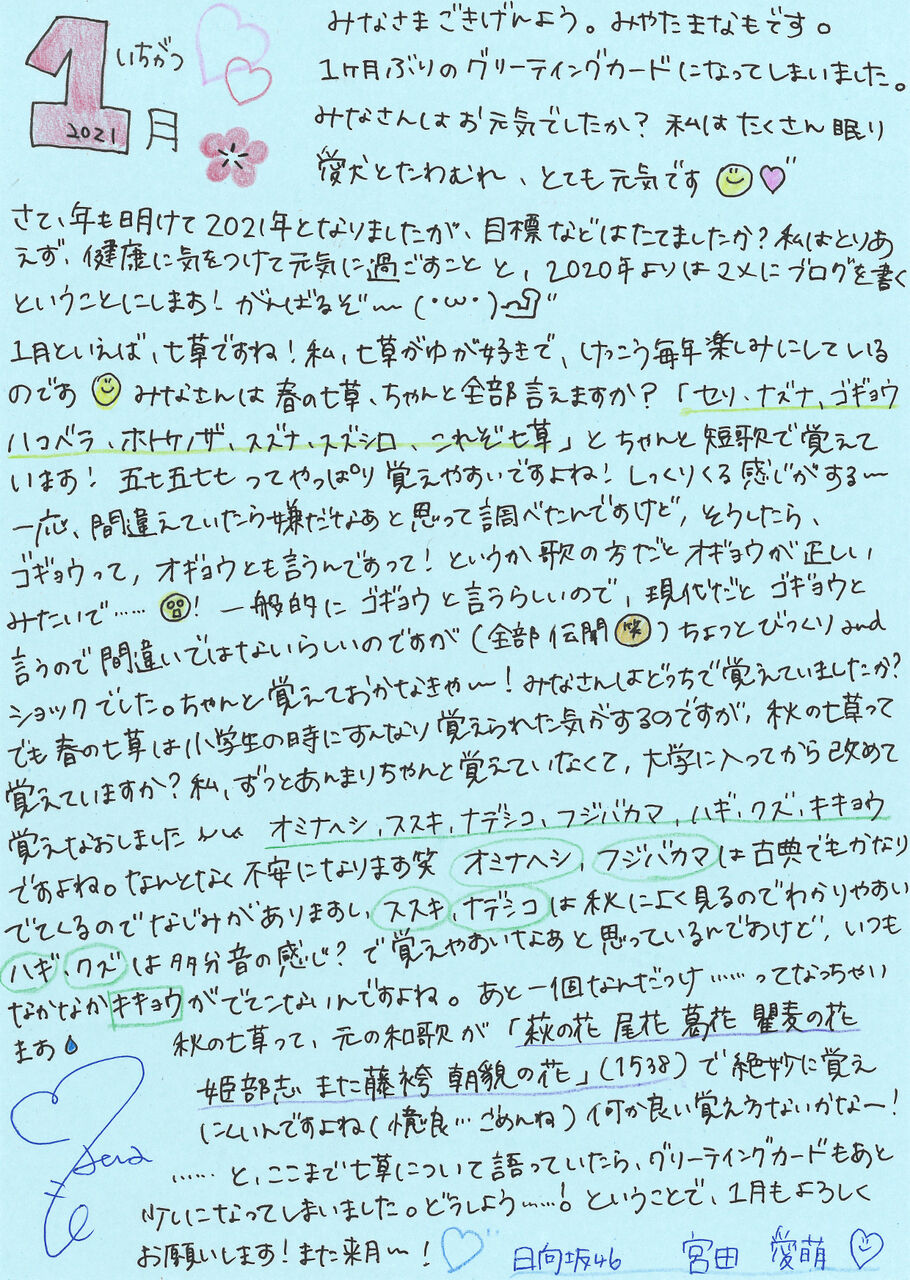 1月
いちがつ
2021
みなさまごきげんよう。みやたまなもです。
1ヶ月ぶりのグリーティングカードになってしまいました。
みなさんはお元気でしたか？私はたくさん眠り
愛犬とたわむれ、とても元気です
さて、年も明けて2021年となりましたが、目標などはたてましたか？私はとりあ
えず、健康に気をつけて元気に過ごすことと、2020年よりはマメにブログを書く
ということにします！がんばるぞ〜(・ω・)
1月といえば、七草ですね！私、七草がゆが好きで、けっこう毎年楽しみにしている
のです みなさんは春の七草、ちゃんと全部言えますか？「セリ、ナズナ、ゴギョウ
ハコベラ、ホトケノザ、スズナ、スズシロ、これぞ七草」とちゃんと短歌で覚えて
います！五七五七七ってやっぱり覚えやすいですよね！しっくりくる感じがする〜
一応、間違えていたら嫌だなあと思って調べたんですけど、そうしたら、
ゴギョウって、オギョウとも言うんですって！というか歌の方だとオギョウが正しい
みたいで……！一般的にゴギョウと言うらしいので、現代だとゴギョウと
言うので間違いではないらしいのですが(全部伝聞笑)ちょっとびっくりand
ショックでした。ちゃんと覚えておかなきゃ〜！みなさんはどっちで覚えていましたか？
でも春の七草は小学生の時にすんなり覚えられた気がするのですが、秋の七草って
覚えていますか？私、ずっとあんまりちゃんと覚えていなくて、大学に入ってから改めて
覚えなおしました オミナヘシ、ススキ、ナデシコ、フジバカマ、ハギ、クズ、キキョウ
ですよね。なんとなく不安になります笑 オミナヘシ、フジバカマは古典でもかなり
でてくるのでなじみがありますし、ススキ、ナデシコは秋によく見るのでわかりやすい
ハギ、クズは多分音の感じ？で覚えやすいなあと思っているんですけど、いつも
なかなかキキョウがでてこないんですよね。あと一個なんだっけ……ってなっちゃい
ます 秋の七草って、元の和歌が「萩の花 尾花 葛花 瞿麦の花
姫部志 また藤袴 朝貌の花」(1538)で絶妙に覚え
にくいんですよね(憶良…ごめんね)何か良い覚え方ないかなー！
……と、ここまで七草について語っていたら、グリーティングカードもあと
少しになってしまいました。どうしよう……！ということで、1月もよろしく
お願いします！また来月〜！ 日向坂46 宮田 愛萌